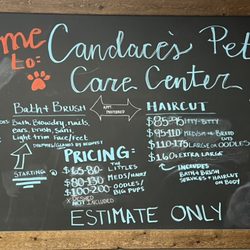 ome Candace's Pet
to: Care Center
Bath + Brush
APPT. PREFERRED
HAIRCUT
Bath, Blowdry, nails,
ears, brush, sani,
Light trim face/feet
$85-95 ITTY-BITTY
$95-110 MEDIUM OR BREED CUTS
$110-175 LARGE OR OODLES
$160 EXTRA LARGE
PRICING:
STARTING
$65-80 THE LITTLES
$80-130 MEDS/HAIRY
$100-200 OODLES/BIG PUPS
NOT INCLUDED
INCLUDES
BATH & BRUSH
SERVICES + HAIRCUT
ON BODY
ESTIMATE ONLY